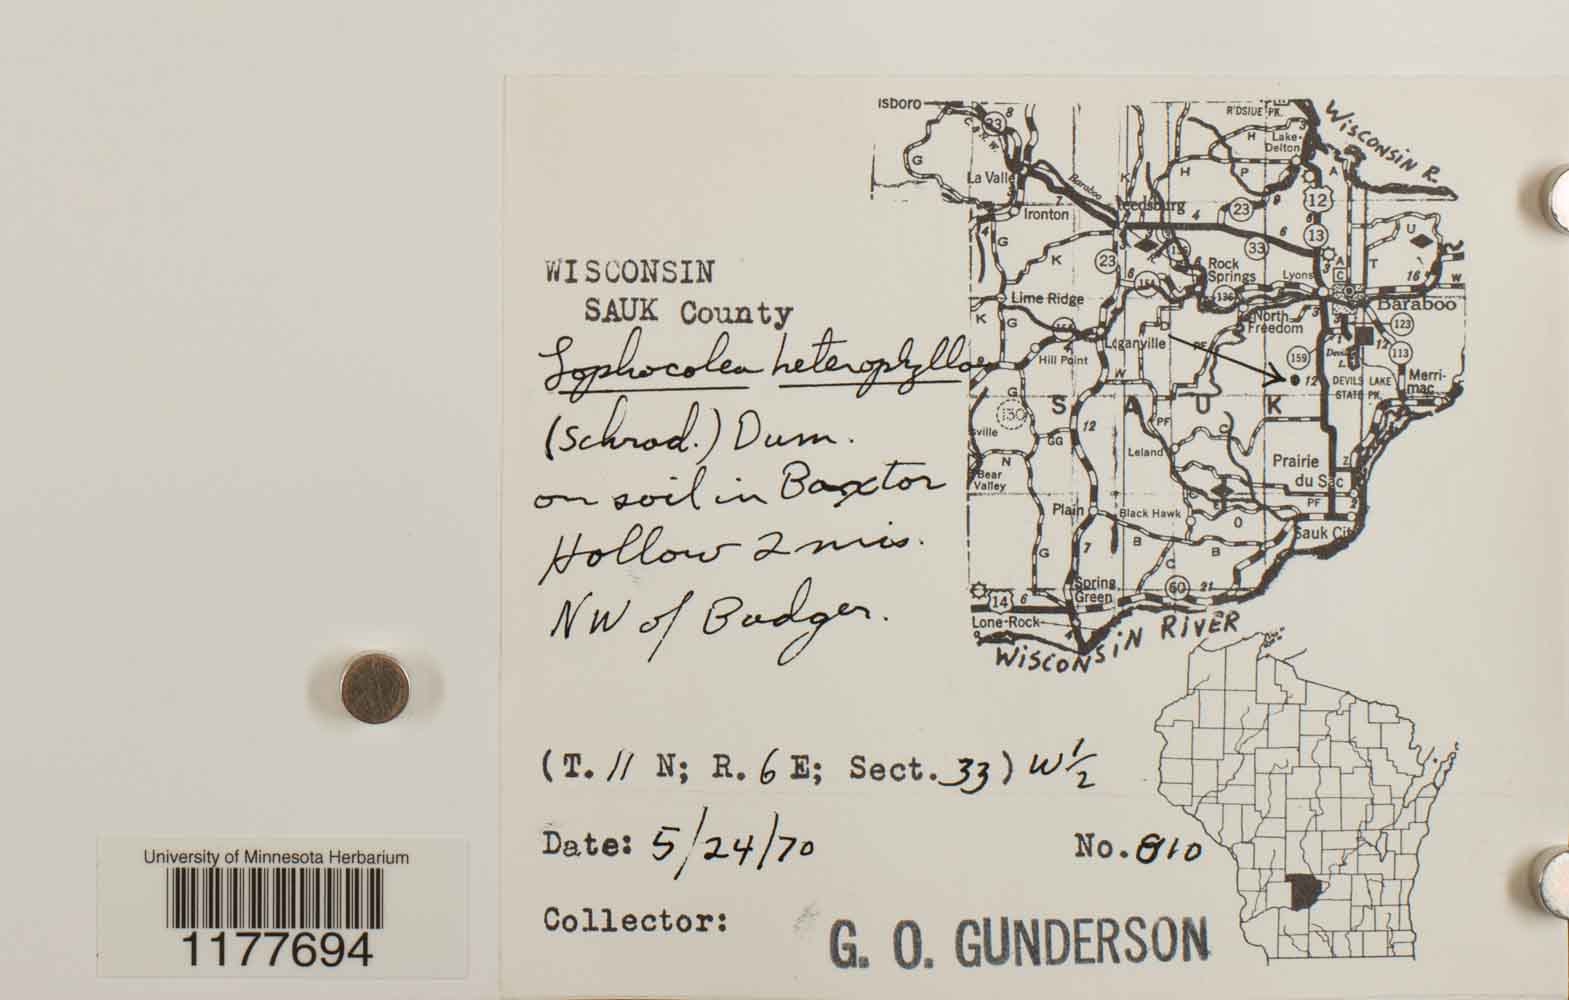 WISCONSIN
SAUK County
Lophocolea heterophylla
(Schrad.) Dum.
on soil in Baxtor
Hollow 2 mis.
NW of Badger.
(T. 11 N; R. 6 E; Sect. 33) W 1/2
Date: 5/24/70
No. 810
Collector:
G. O. GUNDERSON
University of Minnesota Herbarium
1177694
isboro
WISCONSIN R.
R'DSIDE PK.
Lake Delton
La Valle
Baraboo
Reedsburg
Ironton
Rock Springs
Lyons
Lime Ridge
Baraboo
North Freedom
Loganville
Hill Point
Devils L.
DEVILS LAKE
STATE PK.
Merri-
mac
SAUK
sville
Bear Valley
Leland
Prairie
du Sac
Plain
Black Hawk
Sauk Cit
Spring
Green
Lone Rock
WISCONSIN RIVER